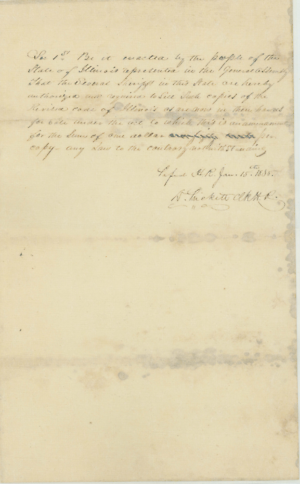 Sec 1st. Be it enacted by the people of the
State of Illinois represented in the General Assembly
That the several Sheriffs in this State are hereby
authorized and required to sell such copies of the
Revised Laws of Illinois as remain in their hands
for sale under the act to which this is
for the sum of one dollar per
copy any law to the contrary notwithstanding
H. R. Jany. 15th
D. Prickett C. H. R.